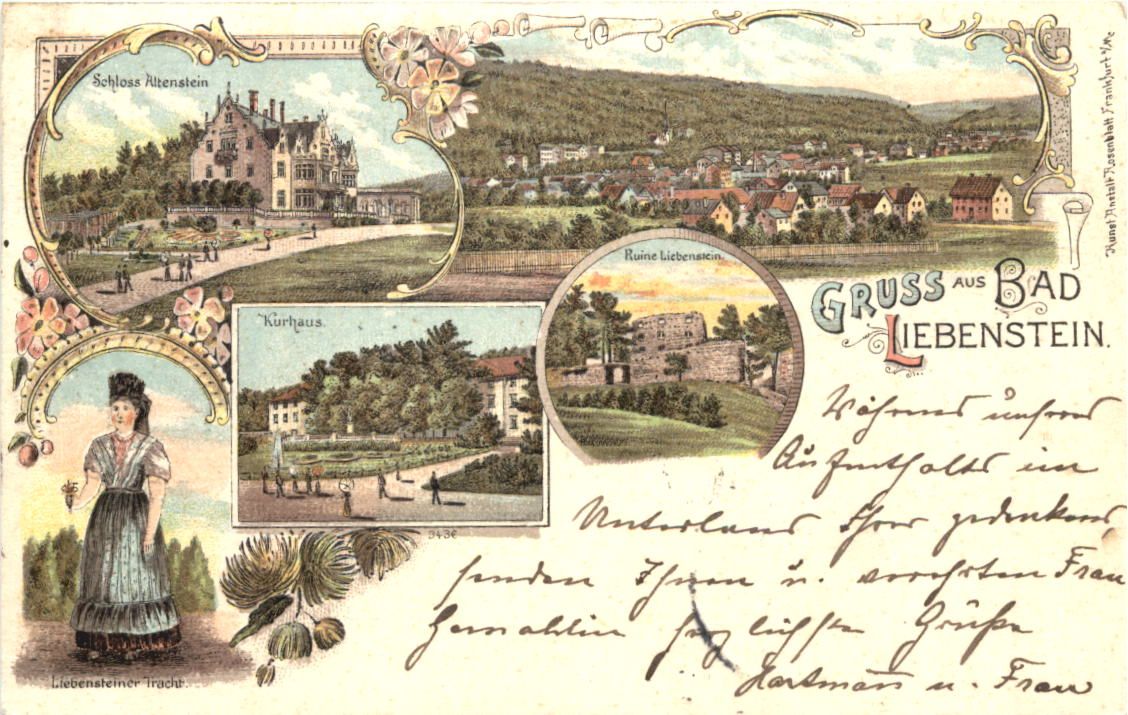 Schloss Altenstein
Kunst Anstalt Rosenblatt Frankfurt a/M.
Ruine Liebenstein.
GRUSS AUS BAD
LIEBENSTEIN.
Kurhaus.
943e
Liebensteiner Tracht.
Während unseres
Aufenthalts im
Unterland Ihrer gedenkend
senden Ihnen u. verehrten Frau
Gemahlin herzlichste Grüße
Hartmann u. Frau